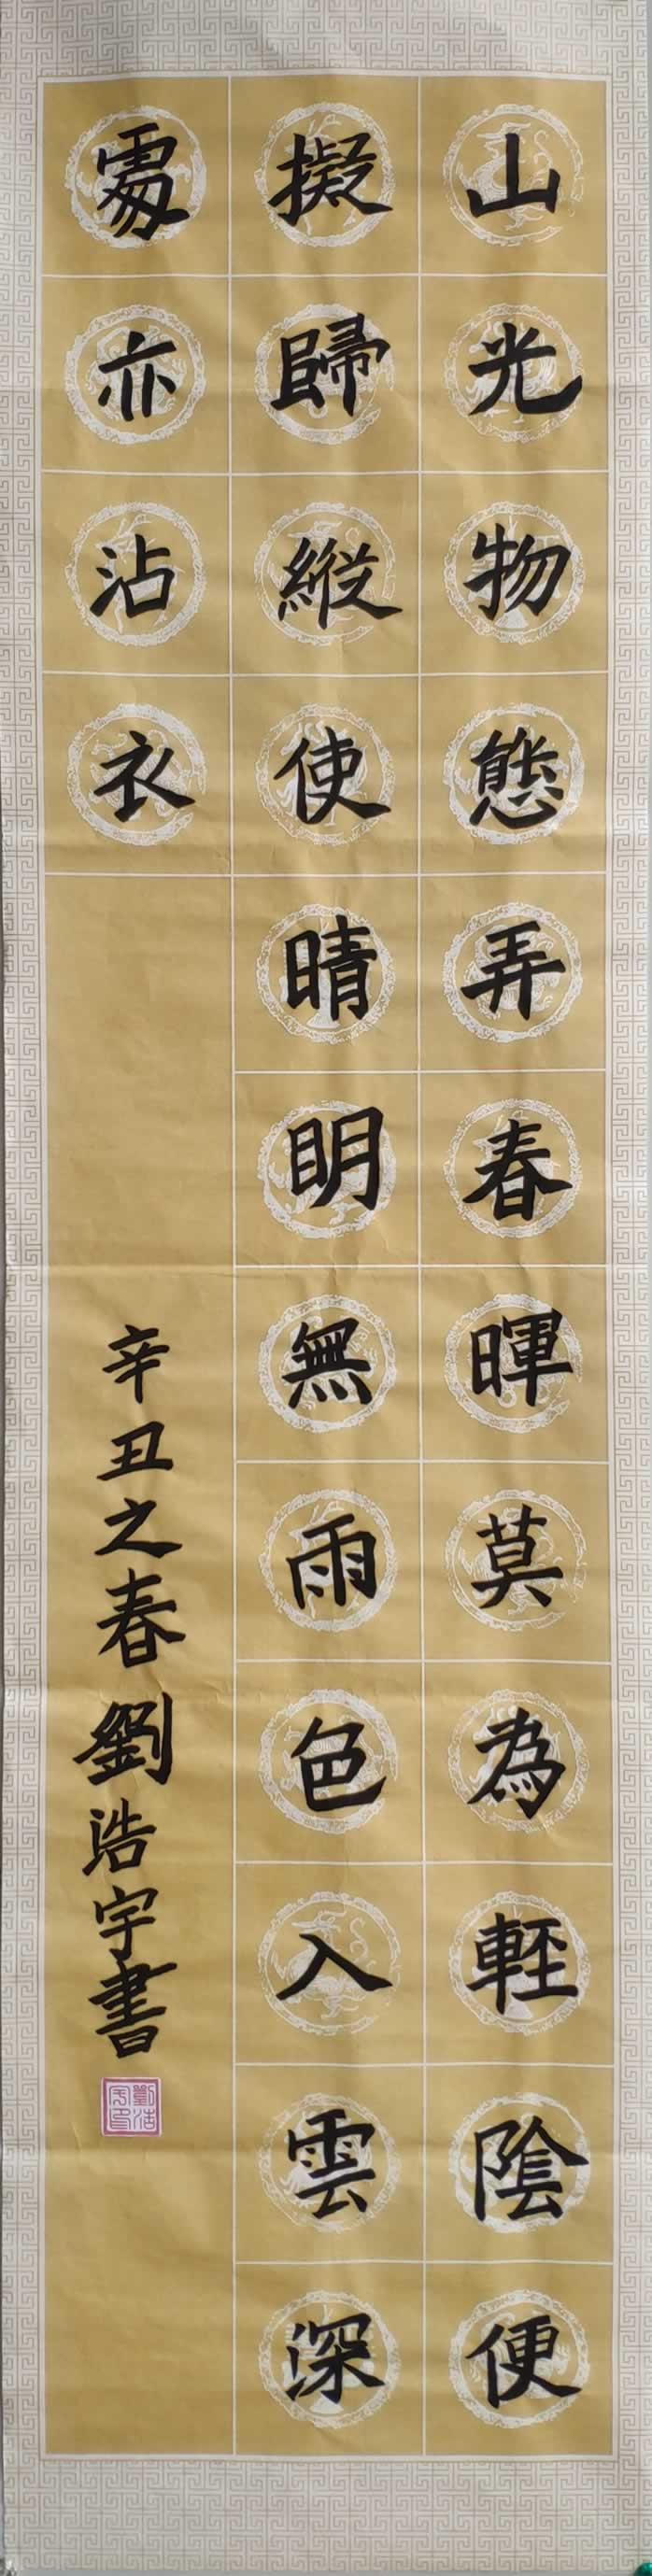 山光物態弄春暉莫為輕陰便
擬歸縱使晴明無雨色入雲深
處亦沾衣
辛丑之春劉浩宇書
劉浩宇印